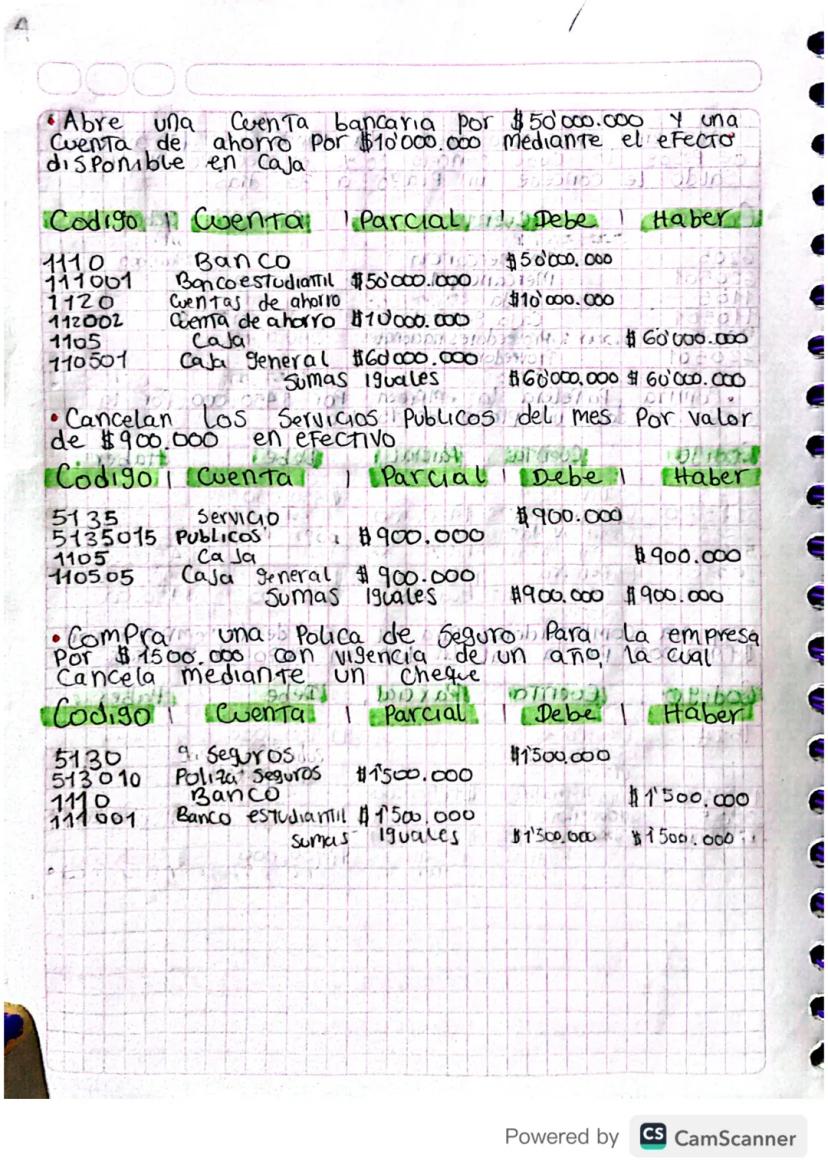 • Abre una Cuenta bancaria por $50'000.000 y una
Cuenta de ahorro por $10'000.000 mediante el efecto
disponible en caja
Codigo | Cuenta | Parcial | Debe | Haber
1110 Banco $50'000.000
111001 Banco estudiantil $50'000.000
1120 Cuentas de ahorro $10'000.000
112002 Cuenta de ahorro $10'000.000
1105 Caja $60'000.000
110501 Caja general $60'000.000
Sumas Iguales $60'000.000 $60'000.000
• Cancelan los Servicios Publicos del mes Por valor
de $900.000 en efectivo
Codigo | Cuenta | Parcial | Debe | Haber
5135 Servicio $900.000
5135015 Publicos $900.000
1105 Caja $900.000
110505 Caja general $900.000
Sumas Iguales $900.000 $900.000
• Compra una Polica de Seguro Para la empresa
Por $1500.000 con vigencia de un año, la cual
Cancela mediante un cheque
Codigo | Cuenta | Parcial | Debe | Haber
5130 g. Seguros $1'500.000
513010 Poliza Seguros $1'500.000
1110 Banco $1'500.000
111001 Banco estudiantil $1'500.000
Sumas Iguales $1'500.000 $1500.000
Powered by CS CamScanner